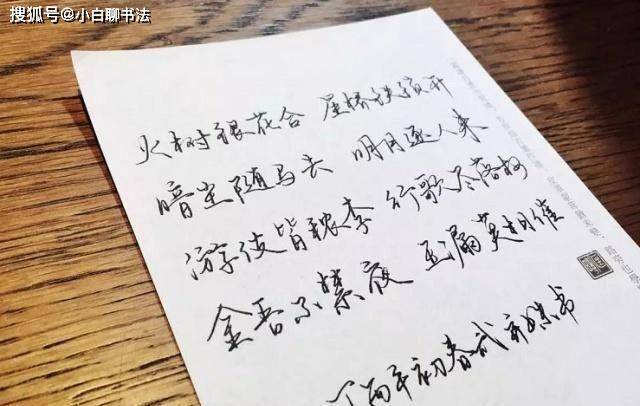 搜狐号@小白聊书法
火树银花合 星桥铁锁开
暗尘随马去 明月逐人来
游伎皆秾李 行歌尽落梅
金吾不禁夜 玉漏莫相催
丁酉年初春 书